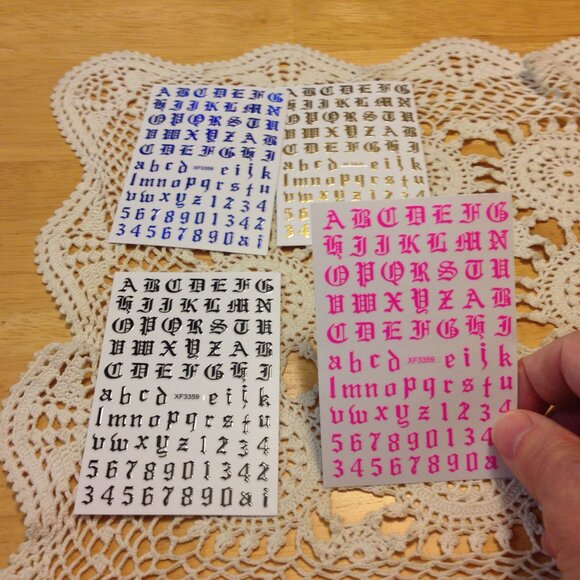 ABCDEFG
HIJKLMN
OPQRSTU
VWXYZAB
CDEFGHI
abcd XF3359 eijk
lmnopqrstu
vwxyz1234
5678901342
34567890ai
ABCDEFG
HIJKLMN
OPQRSTU
VWXYZAB
CDEFGHI
abcd eijk
lmnopqrstu
vwxyz1234
56
34
ABCDEFG
HIJKLMN
OPQRSTU
VWXYZAB
CDEFGHI
abcd XF3359 eijk
lmnopqrstu
vwxyz1234
5678901342
34567890ai
ABCDEFG
HIJKLMN
OPQRSTU
VWXYZAB
CDEFGHI
abcd XF3359 eijk
lmnopqrstu
vwxyz1234
567890134
34567890a